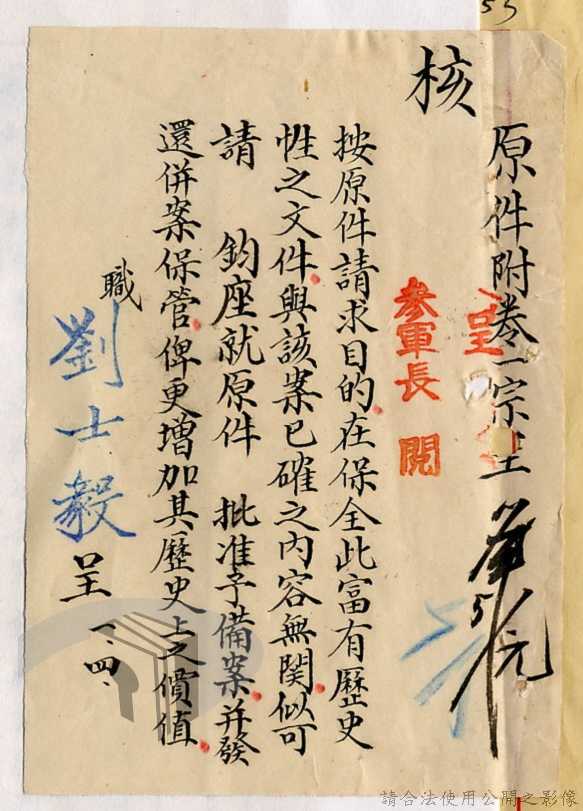 55
原件附卷一宗呈
呈
參軍長 閱
核
按原件請求目的在保全此富有歷史
性之文件與該案已確之內容無関似可
請 鈞座就原件 批准予備案并發
還併案保管俾更增加其歷史上之價值
職
劉士毅
呈 一、四、
請合法使用公開之影像